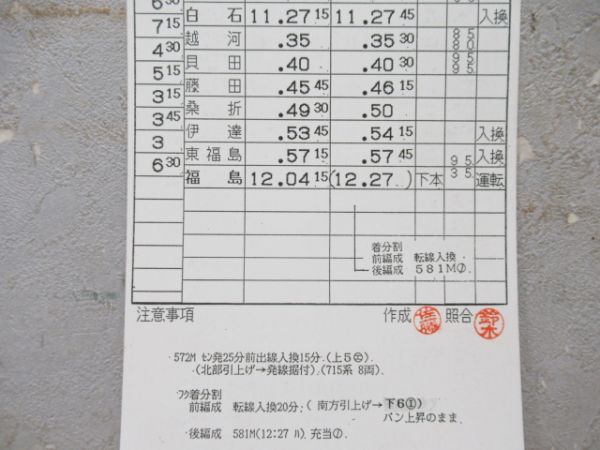 6 30
白石 11.27 15 11.27 45 入換
7 15
越河 .35 .35 30 85 80
4 30
貝田 .40 .40 30 95 95
5 15
藤田 .45 45 .46 15
3 15
桑折 .49 30 .50
3 45
伊達 .53 45 .54 15 入換
3
東福島 .57 15 .57 45 入換
6 30
福島 12.04 15 (12.27 ) 下本 95 35 運転
着分割
前編成 転線入換.
後編成 581M⑦.
注意事項 作成 佐藤 照合 鈴木
572M セン発25分前出線入換15分.(上5㊁).
(北部引上げ→発線据付).(715系 8両).
フク着分割
前編成 転線入換20分:( 南方引上げ→下6①)
パン上昇のまま.
後編成 581M(12:27 ﾊ).充当⑦.